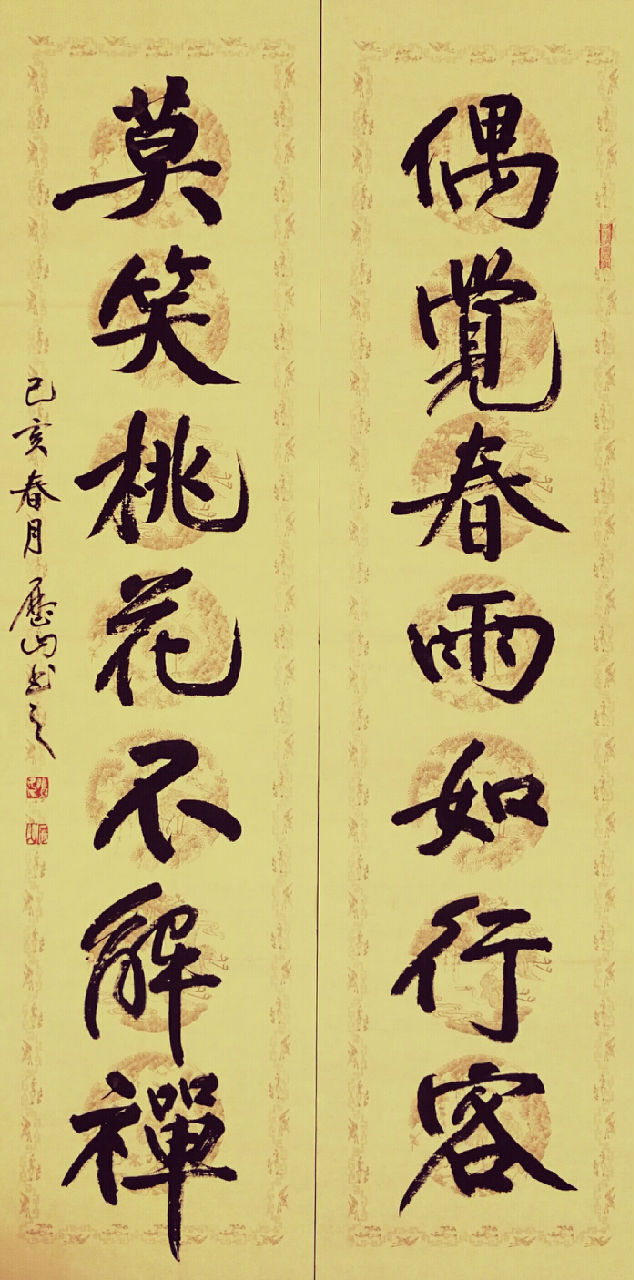 偶覺春雨如行客
莫笑桃花不解禪
己亥春月歷山書之